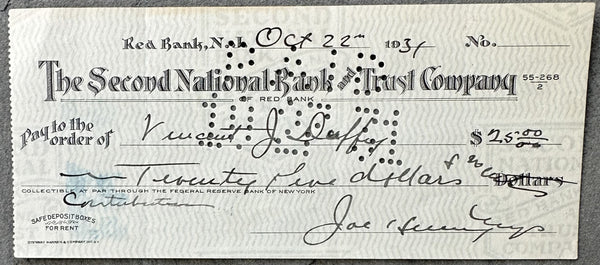 Red Bank, N.J. Oct 22nd 1931 No.
The Second National Bank and Trust Company 55-268/2
OF RED BANK
Pay to the order of Vincent J. Duffy $ 25 00/00
Twenty five dollars & no Dollars
COLLECTIBLE AT PAR THROUGH THE FEDERAL RESERVE BANK OF NEW YORK
Contribution
SAFE DEPOSIT BOXES
FOR RENT
Joe